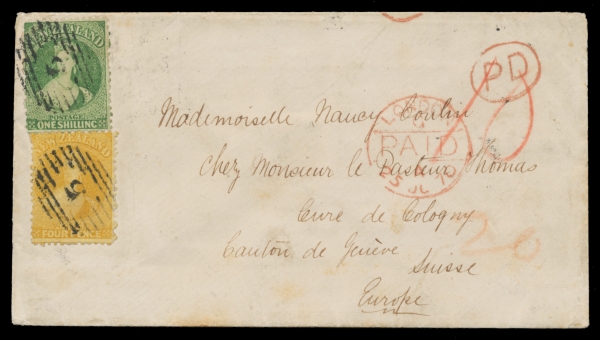 NEW ZEALAND
POSTAGE
ONE SHILLING
NEW ZEALAND
FOUR PENCE
5
5
PD
LONDON
PAID
25 JU 70
Mademoiselle Nancy Coulin
Chez Monsieur le Pasteur Thomas
Cure de Cologny
Canton de Genève
Suisse
Europe